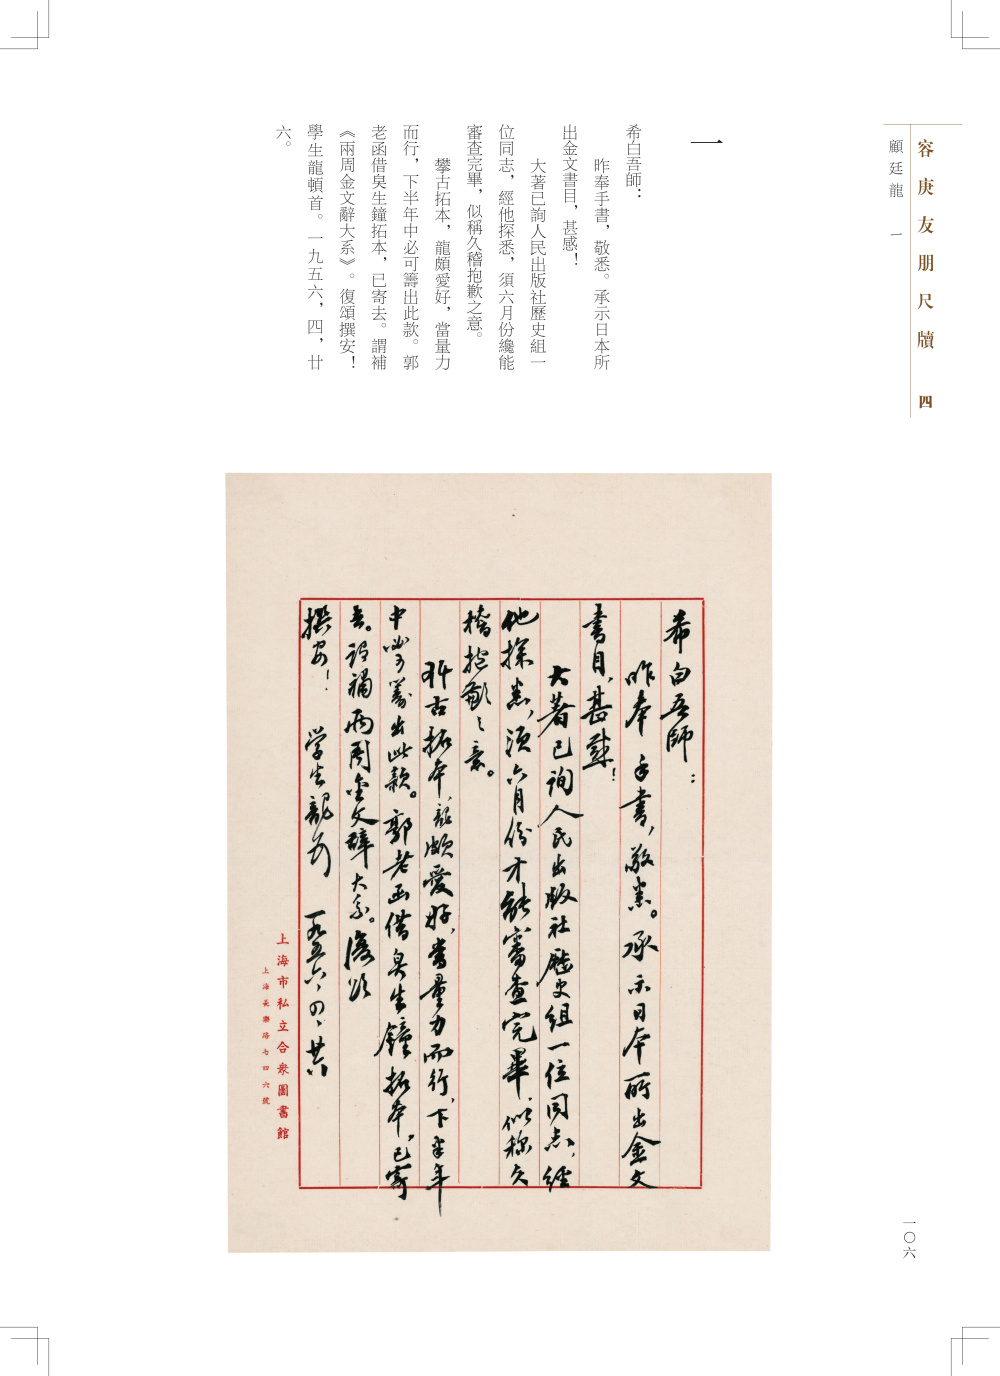 容庚友朋尺牘 四
顧廷龍 一
一
希白吾師：
昨奉手書，敬悉。承示日本所
出金文書目，甚感！
大著已詢人民出版社歷史組一
位同志，經他探悉，須六月份纔能
審查完畢，似稱久稽抱歉之意。
攀古拓本，龍頗愛好，當量力
而行，下半年中必可籌出此款。郭
老函借臭生鐘拓本，已寄去。謂補
《兩周金文辭大系》。復頌撰安！
學生龍頓首。一九五六，四，廿
六。
希白吾師：
昨奉手書，敬悉。承示日本所出金文
書目，甚感！
大著已詢人民出版社歷史組一位同志，經
他探悉，須六月份才能審查完畢，似稱久
稽抱歉之意。
攀古拓本，龍頗愛好，當量力而行，下半年
中必可籌出此款。郭老函借臭生鐘拓本，已寄
去。謂補兩周金文辭大系。復頌
撰安！ 学生龍頓首 一九五六，四，廿六
上海市私立合衆圖書館
上海長樂路七四六號
一〇六